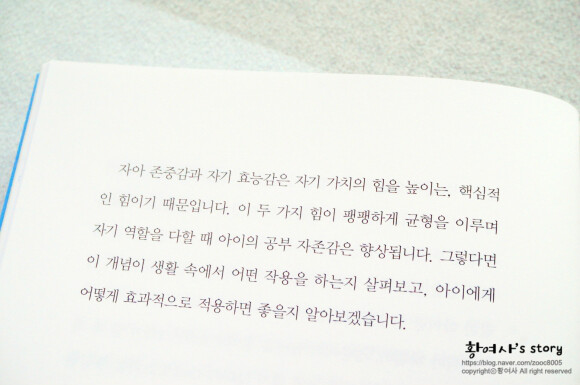 자아 존중감과 자기 효능감은 자기 가치의 힘을 높이는, 핵심적
인 힘이기 때문입니다. 이 두 가지 힘이 팽팽하게 균형을 이루며
자기 역할을 다할 때 아이의 공부 자존감은 향상됩니다. 그렇다면
이 개념이 생활 속에서 어떤 작용을 하는지 살펴보고, 아이에게
어떻게 효과적으로 적용하면 좋을지 알아보겠습니다.
황여사's story
https://blog.naver.com/zooc8005
copyrightⓒ황여사 All right reserved